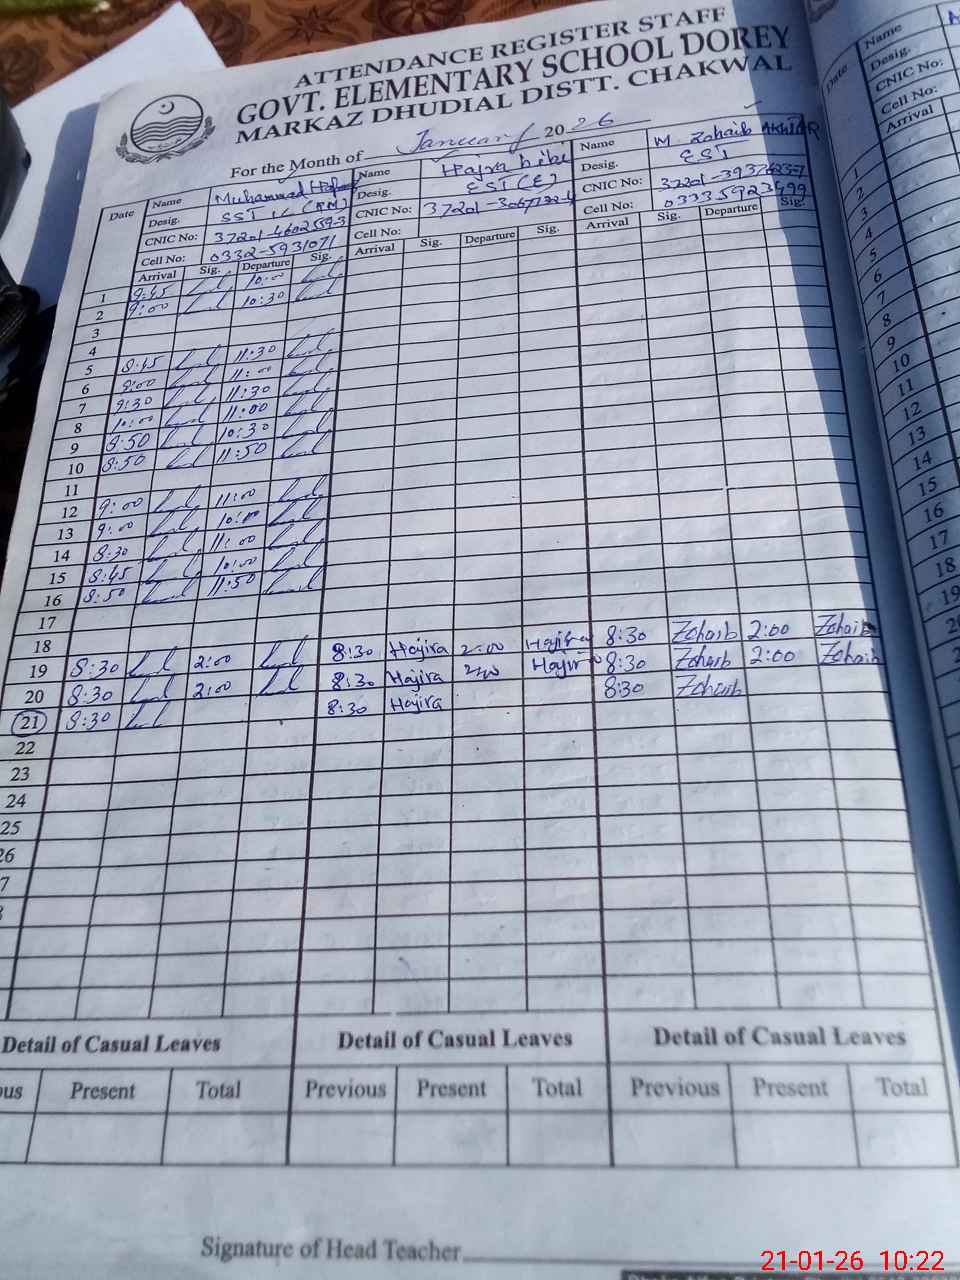 ATTENDANCE REGISTER STAFF
GOVT. ELEMENTARY SCHOOL DOREY
MARKAZ DHUDIAL DISTT. CHAKWAL
For the Month of January 2026
Date Name Muhammad Name Hajra bibi Name M. Zohaib AKHTAR
Desig. SST Desig. EST (E) Desig. EST
CNIC No: CNIC No: CNIC No:
Cell No: 0332-5931071 Cell No: Cell No: 03335923499
Arrival Sig. Departure Sig. Arrival Sig. Departure Sig. Arrival Sig. Departure Sig.
1 9:45 10:00
2 9:00 10:30
3
4
5 8:45 11:30
6 9:00 11:00
7 9:30 11:30
8 10:00 11:00
9 8:50 10:30
10 8:50 11:50
11
12 9:00 11:00
13 9:00 10:00
14 8:30 11:00
15 8:45 10:00
16 8:50 11:50
17
18
19 8:30 2:00 8:30 Hajira 2:00 Hajira 8:30 Zohaib 2:00 Zohaib
20 8:30 2:00 8:30 Hajira 2:00 Hajira 8:30 Zohaib 2:00 Zohaib
21 8:30 8:30 Hajira 8:30 Zohaib
22
23
24
25
26
7
Detail of Casual Leaves Detail of Casual Leaves Detail of Casual Leaves
ous Present Total Previous Present Total Previous Present Total
Signature of Head Teacher
21-01-26 10:22
Date Name
Desig.
CNIC No:
Cell No:
Arrival
1
2
3
4
5
6
7
8
9
10
11
12
13
14
15
16
17
18
19